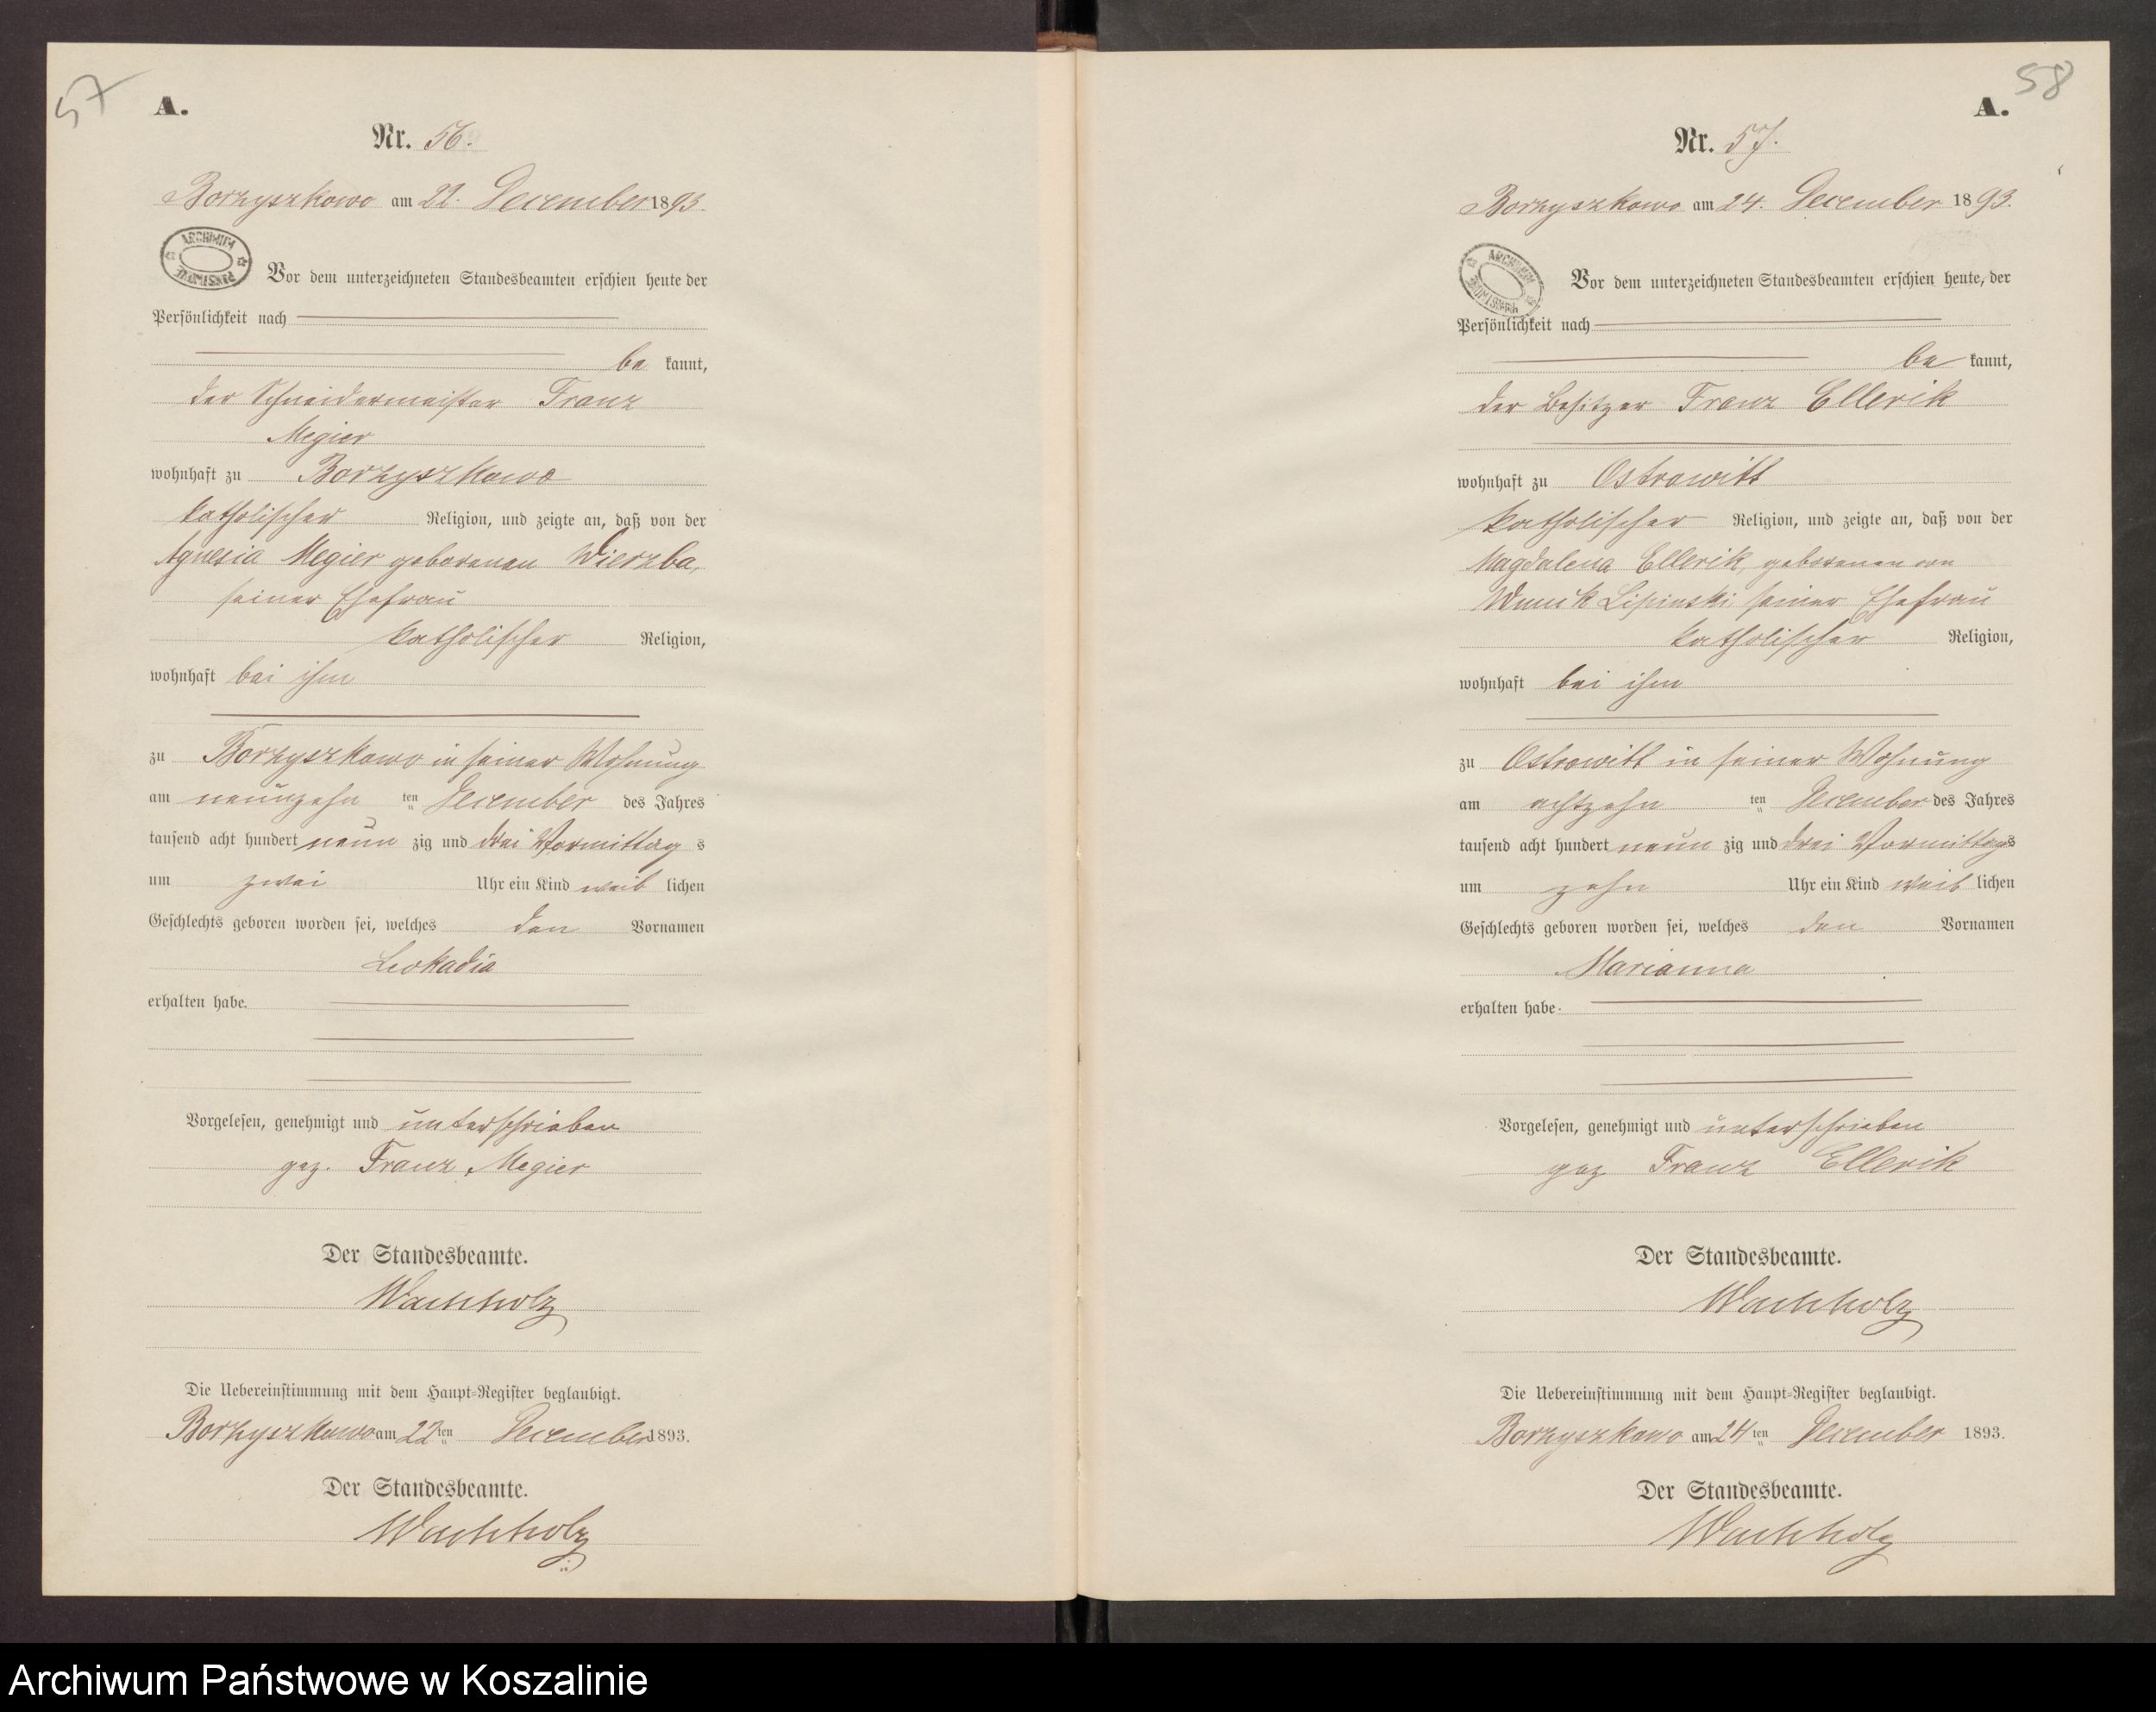 57
A.
Nr. 56.
Borzyszkowo am 22. December 1893.
ARCHIWUM
Vor dem unterzeichneten Standesbeamten erschien heute der
Persönlichkeit nach
be kannt,
der Schneidermeister Franz
Megier
wohnhaft zu Borzyszkowo
katholischer Religion, und zeigte an, daß von der
Agnesia Megier geborenen Wierzba,
seiner Ehefrau
katholischer Religion,
wohnhaft bei ihm
zu Borzyszkowo in seiner Wohnung
am neunzehn ten December des Jahres
tausend acht hundert neun zig und drei Vormittag s
um zwei Uhr ein Kind weib lichen
Geschlechts geboren worden sei, welches den Vornamen
Leokadia
erhalten habe.
Vorgelesen, genehmigt und unterschrieben
gez. Franz Megier
Der Standesbeamte.
Wachholz
Die Uebereinstimmung mit dem Haupt-Register beglaubigt.
Borzyszkowo am 22 ten December 1893.
Der Standesbeamte.
Wachholz
58
A.
Nr. 57.
Borzyszkowo am 24. December 1893.
ARCHIWUM
Vor dem unterzeichneten Standesbeamten erschien heute, der
Persönlichkeit nach
be kannt,
der Besitzer Franz Ellerik
wohnhaft zu Ostrowitt
katholischer Religion, und zeigte an, daß von der
Magdalena Ellerik, geborenen von
Wnuk Lipinski seiner Ehefrau
katholischer Religion,
wohnhaft bei ihm
zu Ostrowitt in seiner Wohnung
am achtzehn ten December des Jahres
tausend acht hundert neun zig und drei Vormittags
um zehn Uhr ein Kind weib lichen
Geschlechts geboren worden sei, welches den Vornamen
Marianna
erhalten habe.
Vorgelesen, genehmigt und unterschrieben
gez Franz Ellerik
Der Standesbeamte.
Wachholz
Die Uebereinstimmung mit dem Haupt-Register beglaubigt.
Borzyszkowo am 24 ten December 1893.
Der Standesbeamte.
Wachholz
Archiwum Państwowe w Koszalinie